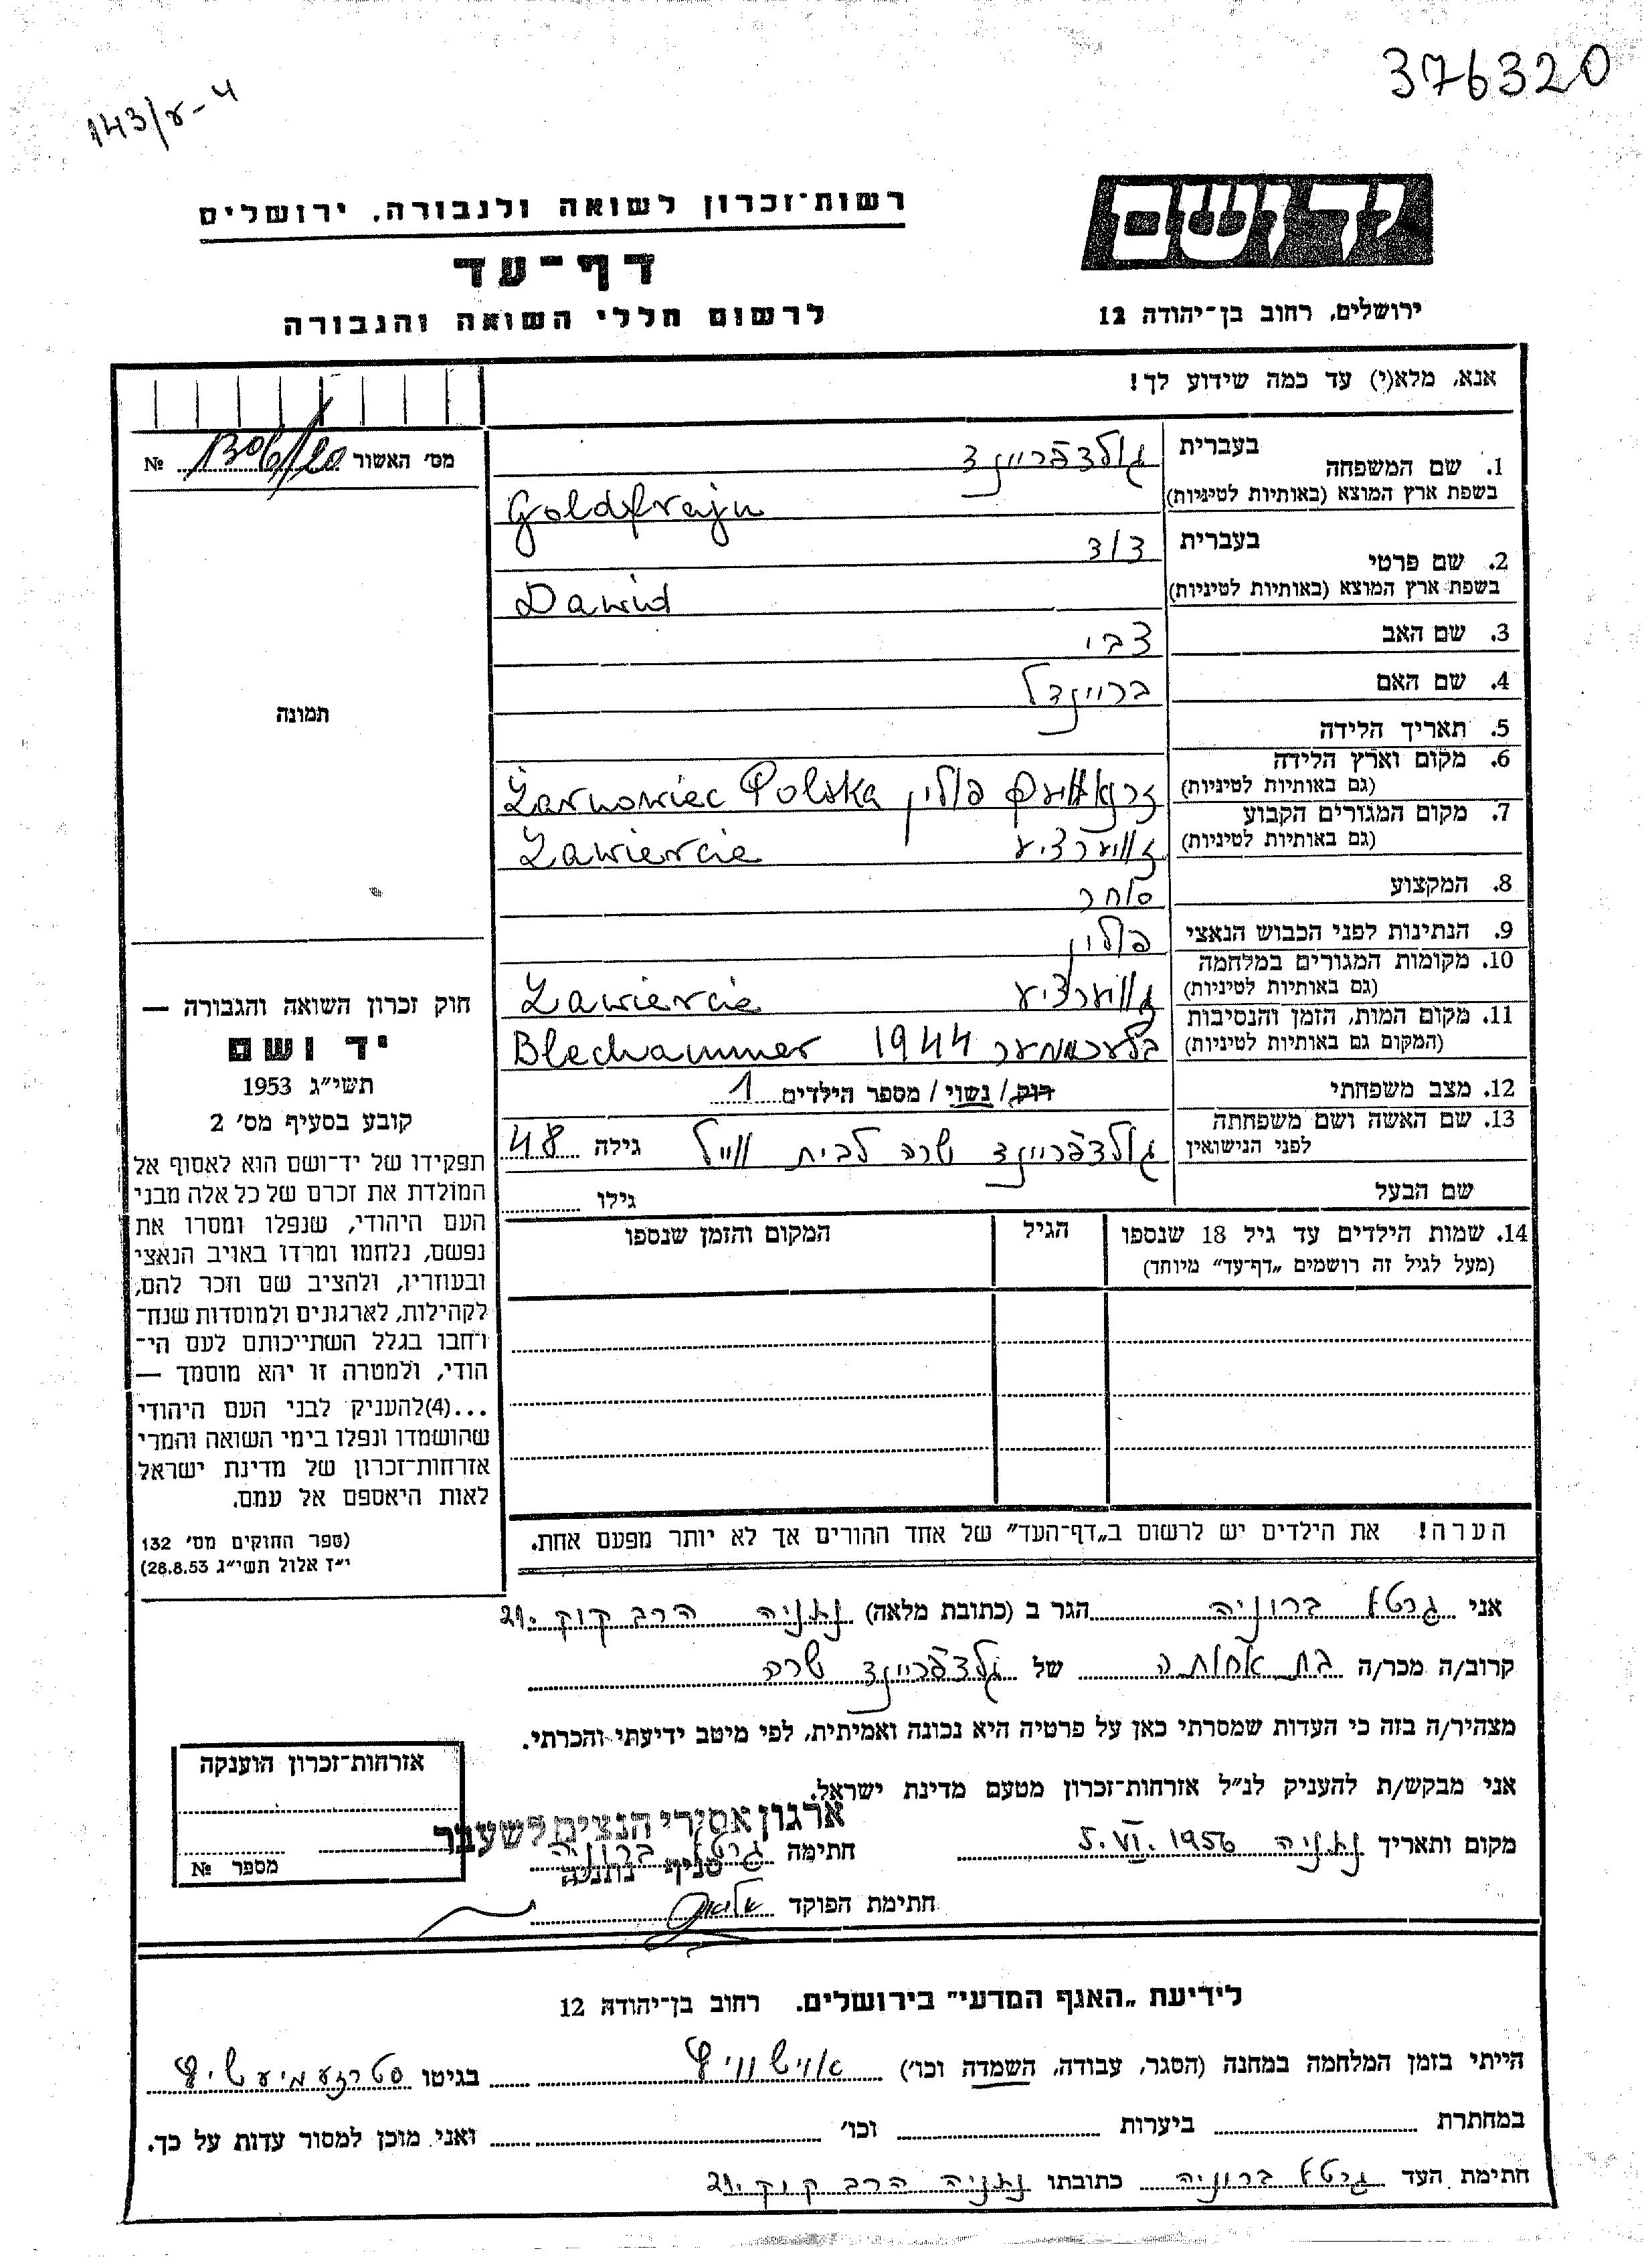 376320
143/ד-4
יד ושם
רשות-זכרון לשואה ולגבורה, ירושלים
דף-עד
לרשום חללי השואה והגבורה
ירושלים, רחוב בן-יהודה 12
אנא, מלא(י) עד כמה שידוע לך!
מס' האשור № 1306/20
1. שם המשפחה בעברית גולדפריינד
בשפת ארץ המוצא (באותיות לטיניות) Goldfrajn
2. שם פרטי בעברית דוד
בשפת ארץ המוצא (באותיות לטיניות) Dawid
3. שם האב צבי
4. שם האם בריינדל
5. תאריך הלידה
6. מקום וארץ הלידה
(גם באותיות לטיניות) פולין Żarnowiec Polska
7. מקום המגורים הקבוע
(גם באותיות לטיניות) זאוויערציע Zawiercie
8. המקצוע סוחר
9. הנתינות לפני הכבוש הנאצי פולין
10. מקומות המגורים במלחמה
(גם באותיות לטיניות) זאוויערציע Zawiercie
11. מקום המות, הזמן והנסיבות
(המקום גם באותיות לטיניות) בלעכאממער 1944 Blechammer
12. מצב משפחתי רווק / נשוי / מספר הילדים 1
13. שם האשה ושם משפחתה
לפני הנישואין גולדפריינד שרה לבית ווייל גילה 48
שם הבעל גילו
14. שמות הילדים עד גיל 18 שנספו הגיל המקום והזמן שנספו
(מעל לגיל זה רושמים "דף-עד" מיוחד)
הערה! את הילדים יש לרשום ב"דף-העד" של אחד ההורים אך לא יותר מפעם אחת.
תמונה
חוק זכרון השואה והגבורה —
יד ושם
תשי"ג 1953
קובע בסעיף מס' 2
תפקידו של יד-ושם הוא לאסוף אל
המולדת את זכרם של כל אלה מבני
העם היהודי, שנפלו ומסרו את
נפשם, נלחמו ומרדו באויב הנאצי
ובעוזריו, ולהציב שם וזכר להם,
לקהילות, לארגונים ולמוסדות שנח-
רבו בגלל השתייכותם לעם הי-
הודי, ולמטרה זו יהא מוסמך —
...(4)להעניק לבני העם היהודי
שהושמדו ונפלו בימי השואה והמרי
אזרחות-זכרון של מדינת ישראל
לאות היאספם אל עמם.
(ספר החוקים מס' 132
י"ז אלול תשי"ג 28.8.53)
אני גרטא ברוניה הגר ב (כתובת מלאה) נתניה הרב קוק 21.
קרוב/ה מכר/ה בת אחותה של גולדפריינד שרה
מצהיר/ה בזה כי העדות שמסרתי כאן על פרטיה היא נכונה ואמיתית, לפי מיטב ידיעתי והכרתי.
אני מבקש/ת להעניק לנ"ל אזרחות-זכרון מטעם מדינת ישראל.
ארגון אסירי הנצים לשעבר
סניף נתניה
מקום ותאריך נתניה 5.VI.1956 חתימה גרטא ברוניה
חתימת הפוקד
אזרחות-זכרון הוענקה
מספר №
לידיעת "האגף המדעי" בירושלים. רחוב בן-יהודה 12
הייתי בזמן המלחמה במחנה (הסגר, עבודה, השמדה וכו') אוישוויץ בגיטו סטרזעמיעשיץ
במחתרת ביערות וכו' ואני מוכן למסור עדות על כך.
חתימת העד גרטא ברוניה כתובתו נתניה הרב קוק 21.